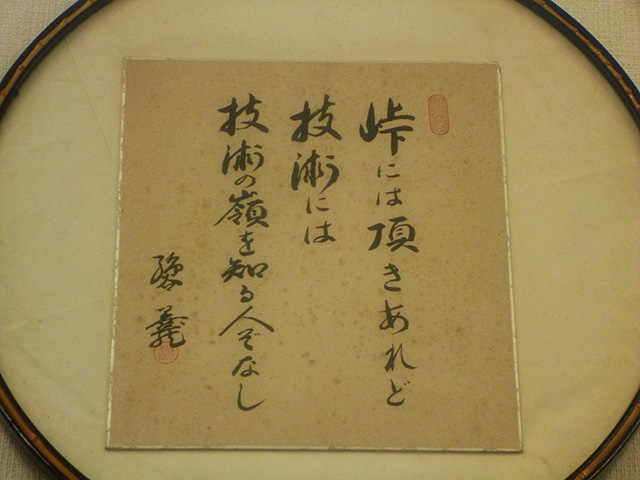 峠には頂きあれど
技術には
技術の嶺を知る人ぞなし